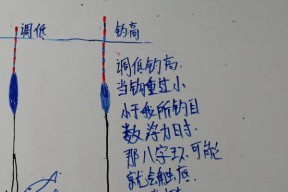 调低
钓高
调低钓高.
当钩重过小
小于我所钓目
数浮力日寸.
那八字环可能
就会触底.